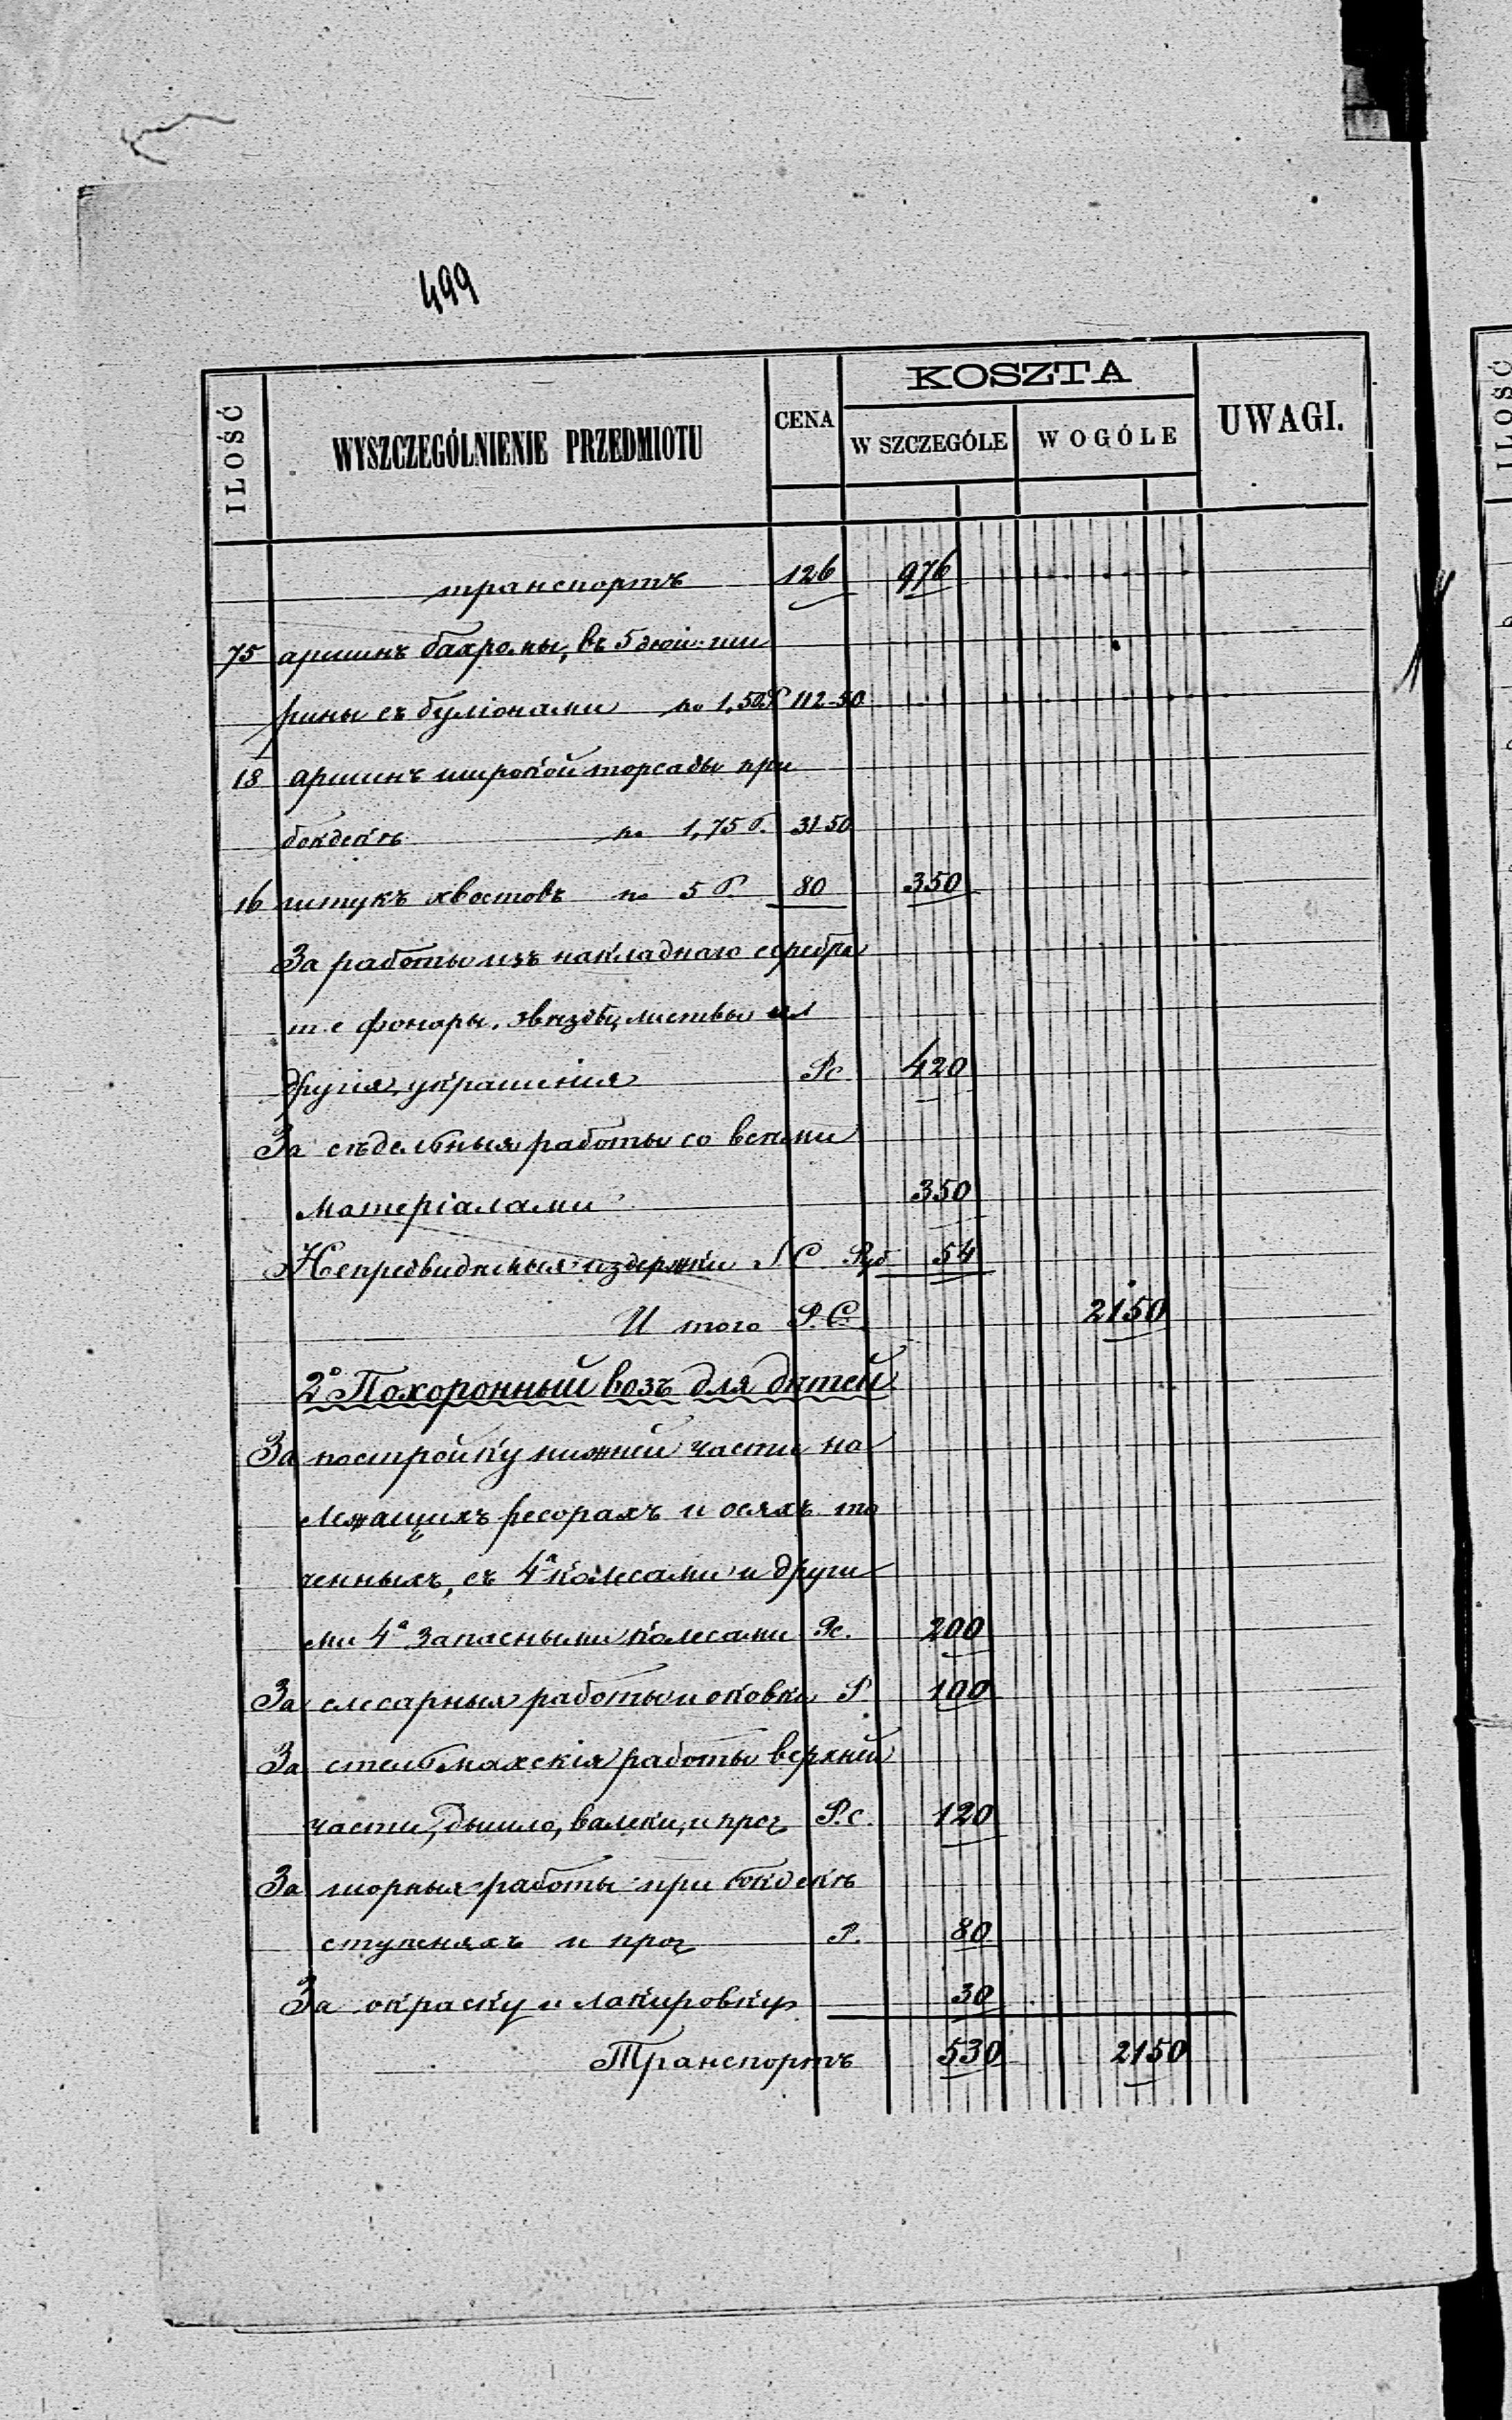 499
ILOŚĆ WYSZCZEGÓLNIENIE PRZEDMIOTU CENA KOSZTA UWAGI.
W SZCZEGÓLE W OGÓLE
транспортъ 126 976
75 аршинъ бахромы, въ 5 дюй. ши
рины съ буліонами по 1,50 Р 112-50
18 аршинъ широкой торсады при
бокдекѣ по 1,75 Р. 31-50
16 штукъ хвостовъ по 5 Р. 80 350
За работы изъ накладнаго серебра
т. е фонары, звѣзды, листвы и
другія украшенія Рс 420
За сѣдельныя работы со всѣми
матеріалами 350
Непредвидимыя издержки С Руб 54
И того Р.С. 2150
2° Похоронный возъ для дѣтей.
За постройку нижней части на
лежащихъ ресорахъ и осяхъ то
ченныхъ, съ 4ª колесами и други
ми 4ª запасными колесами Рс. 200
За слесарныя работы и оковка Р 100
За стельмахскія работы верхней
части, дышло, валеки, и проч Р.с. 120
За шорныя работы при бокдекѣ
ступеняхъ и проч Р. 80
За окраску и лакировку 30
Транспортъ 530 2150
ILOŚĆ